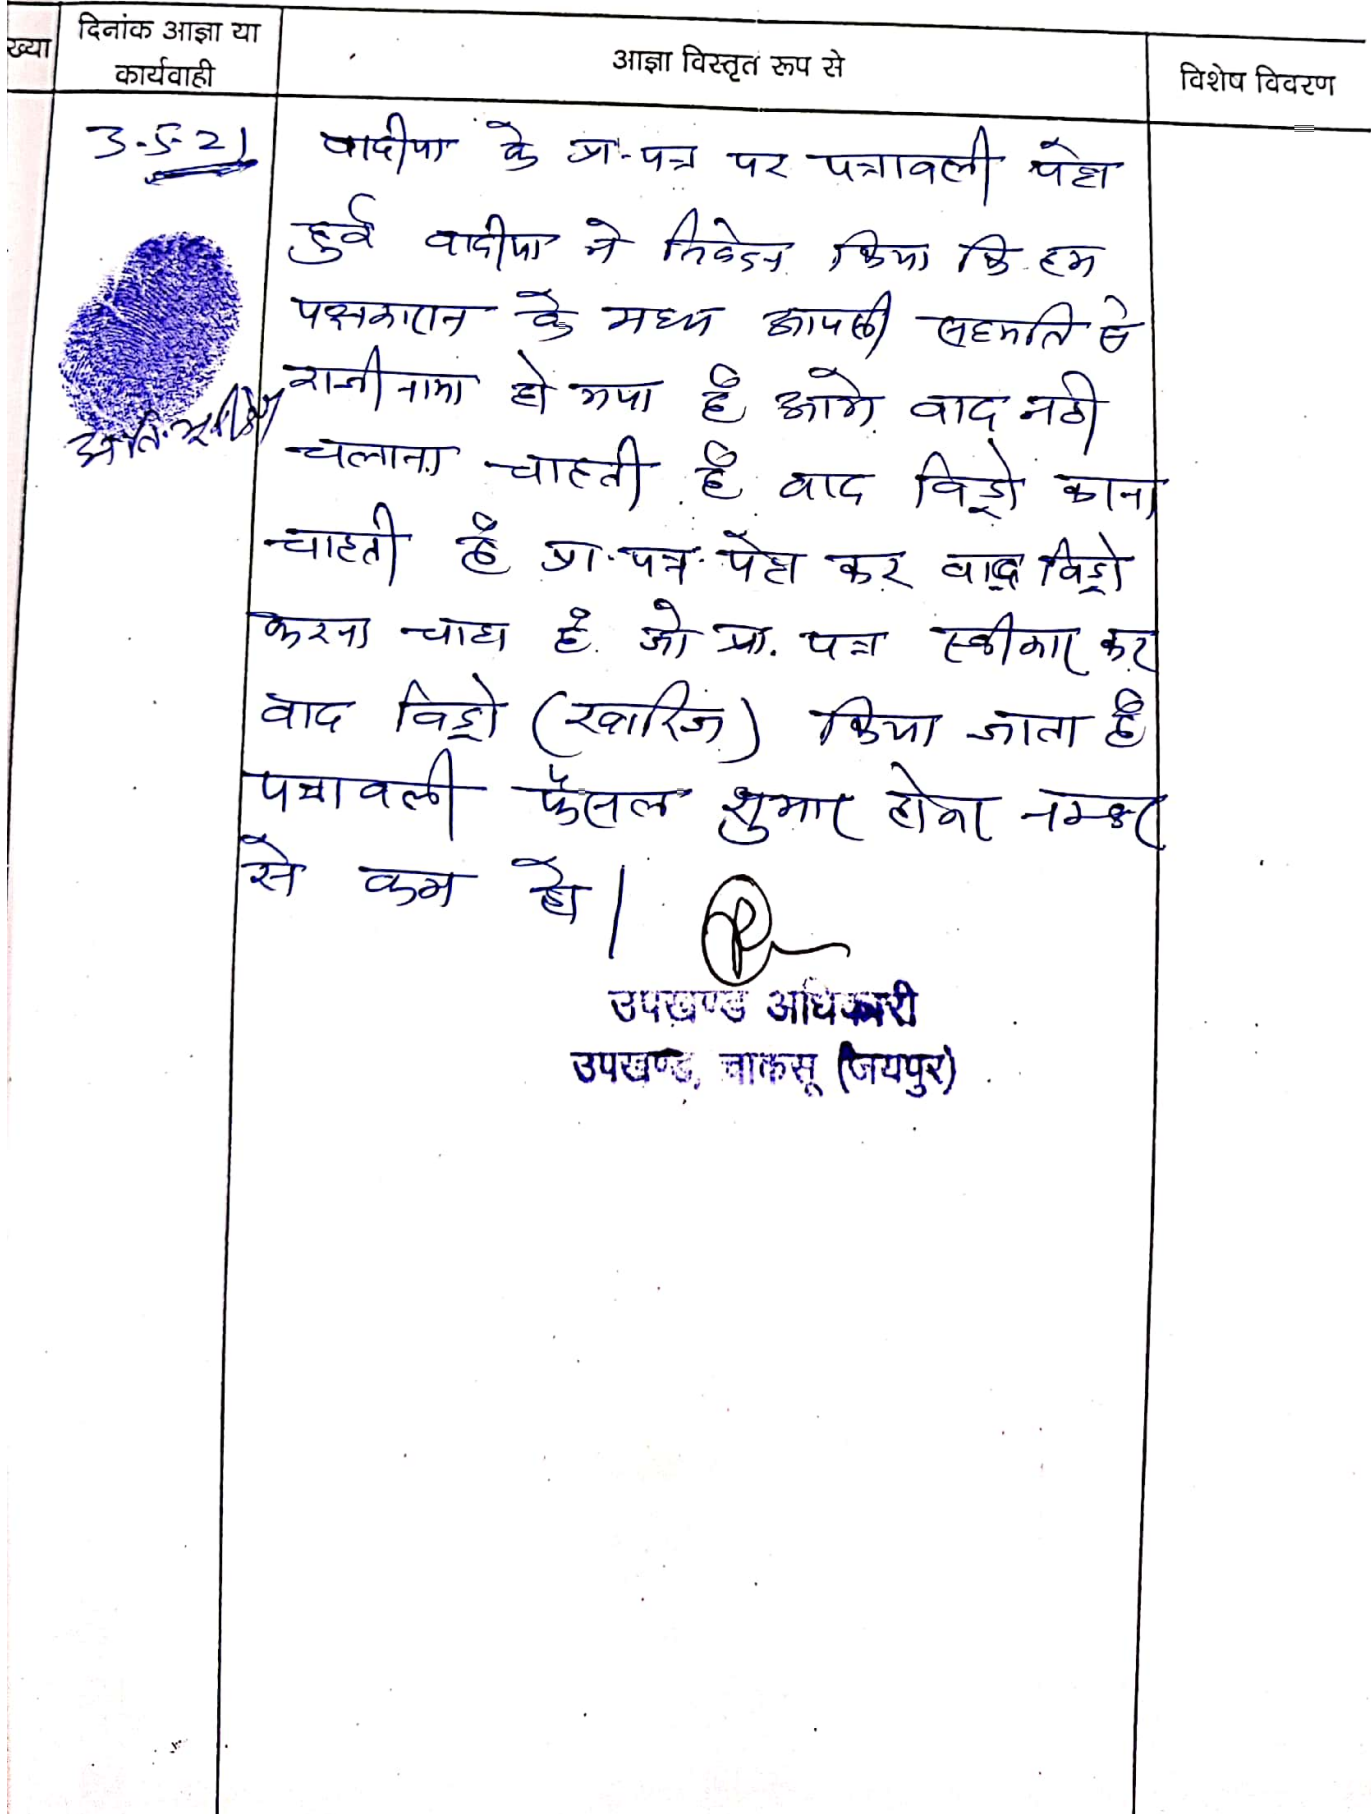 ख्या
दिनांक आज्ञा या
कार्यवाही
आज्ञा विस्तृत रूप से
विशेष विवरण
3-5-21
वादीया के प्रा.पत्र पर पत्रावली पेश
हुई वादीया ने निवेदन किया कि हम
पक्षकारान के मध्य आपसी सहमति से
राजीनामा हो गया है आगे वाद नही
चलाना चाहती है वाद विड्रो करना
चाहती है प्रा.पत्र पेश कर वाद विड्रो
करना चाहा है. जो प्रा. पत्र स्वीकार कर
वाद विड्रो (खारिज) किया जाता है
पत्रावली फैसल शुमार होकर नम्बर
से कम हो।
उपखण्ड अधिकारी
उपखण्ड, चाकसू (जयपुर)